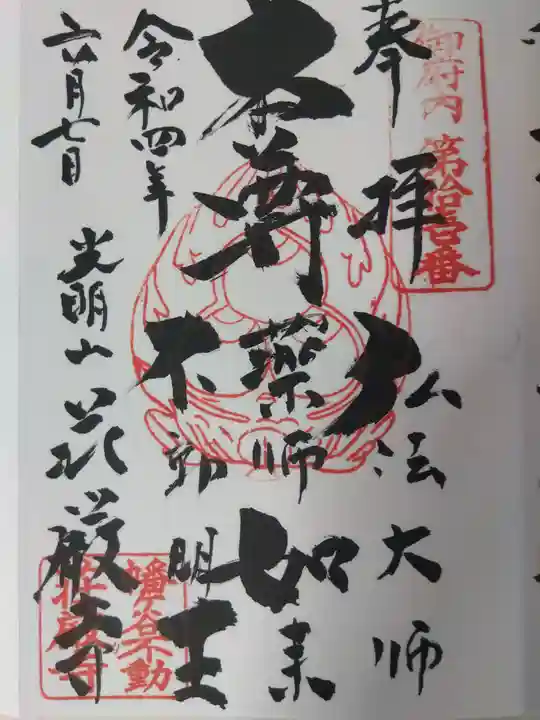 奉拝
弘法大師
本尊
薬師如来
不動明王
令和四年
六月七日
光明山
荘厳寺
御府内
第拾壱番
幡ヶ谷不動
荘厳寺